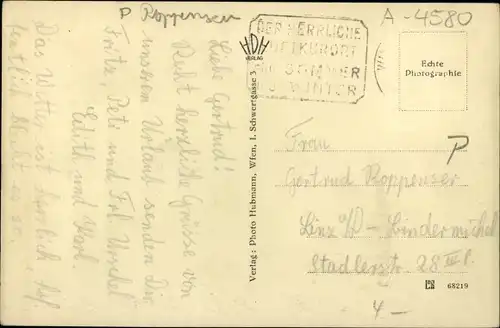 P Roppenser
A-4580
DER HERRLICHE
LUFTKURORT
SOMMER
WINTER
HDH
VERLAG
Echte
Photographie
Liebe Gertrud!
Recht herzliche Grüsse von
unserem Urlaub senden Dir
Fritz, Peti und Frl.
Edith und Karl.
Das Wetter ist herrlich,
Verlag: Photo Hubmann, Wien, I. Schwertgasse 3
Frau
P
Gertrud Roppenser
Linz a/D - Bindermichel
Stadlerstr. 28 III
4 -
68219